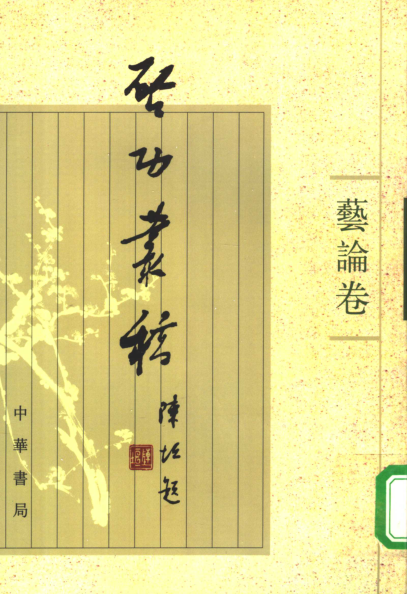 藝論卷
启功叢稿
陳垣題
中華書局